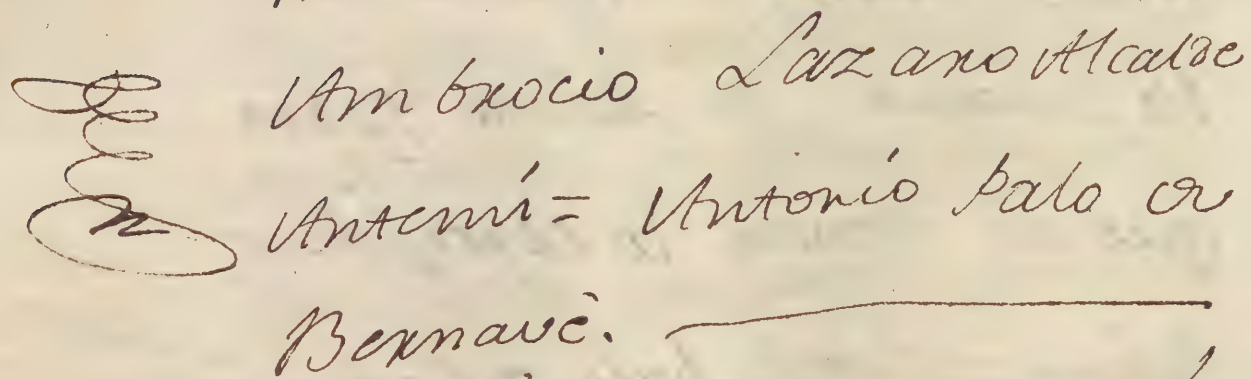 Ambrocio Lazaro Alcalde
Antemí = Antonio Palo
Bernavè.